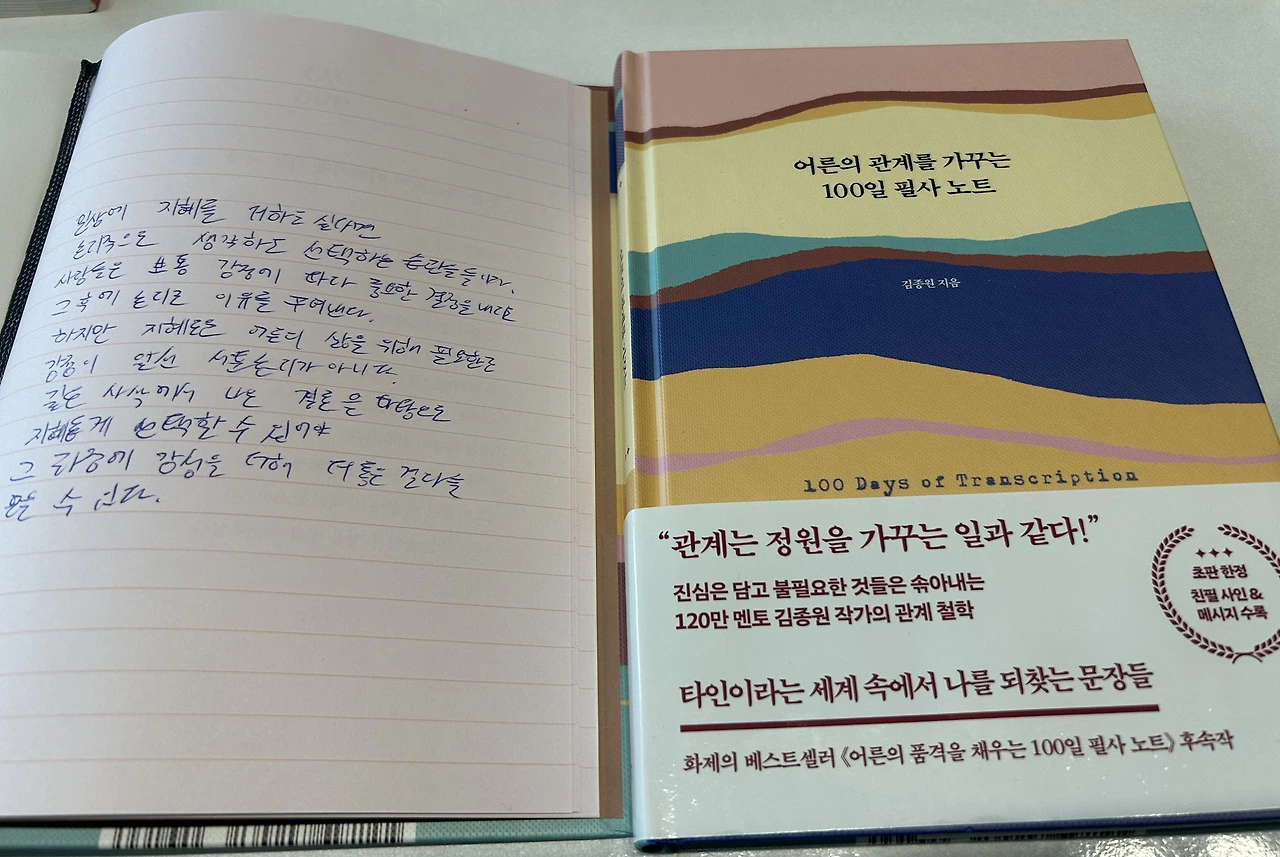 일상에 지혜를 더하고 싶다면
논리적으로 생각하고 선택하는 습관을 들이자.
사람들은 보통 감정에 따라 중요한 결정을 내리고
그 후에 논리로 이유를 꾸며낸다.
하지만 지혜로운 어른의 삶을 위해 필요한 건
감정이 앞선 서툰 논리가 아니다.
깊은 사색에서 나온 결론을 바탕으로
지혜롭게 선택할 수 있어야
그 과정에 감성을 더해 더 좋은 결과를
만들 수 있다.
어른의 관계를 가꾸는
100일 필사 노트
김종원 지음
100 Days of Transcription
“관계는 정원을 가꾸는 일과 같다!”
진심은 담고 불필요한 것들은 솎아내는
120만 멘토 김종원 작가의 관계 철학
초판 한정
친필 사인 &
메시지 수록
타인이라는 세계 속에서 나를 되찾는 문장들
화제의 베스트셀러 《어른의 품격을 채우는 100일 필사 노트》 후속작